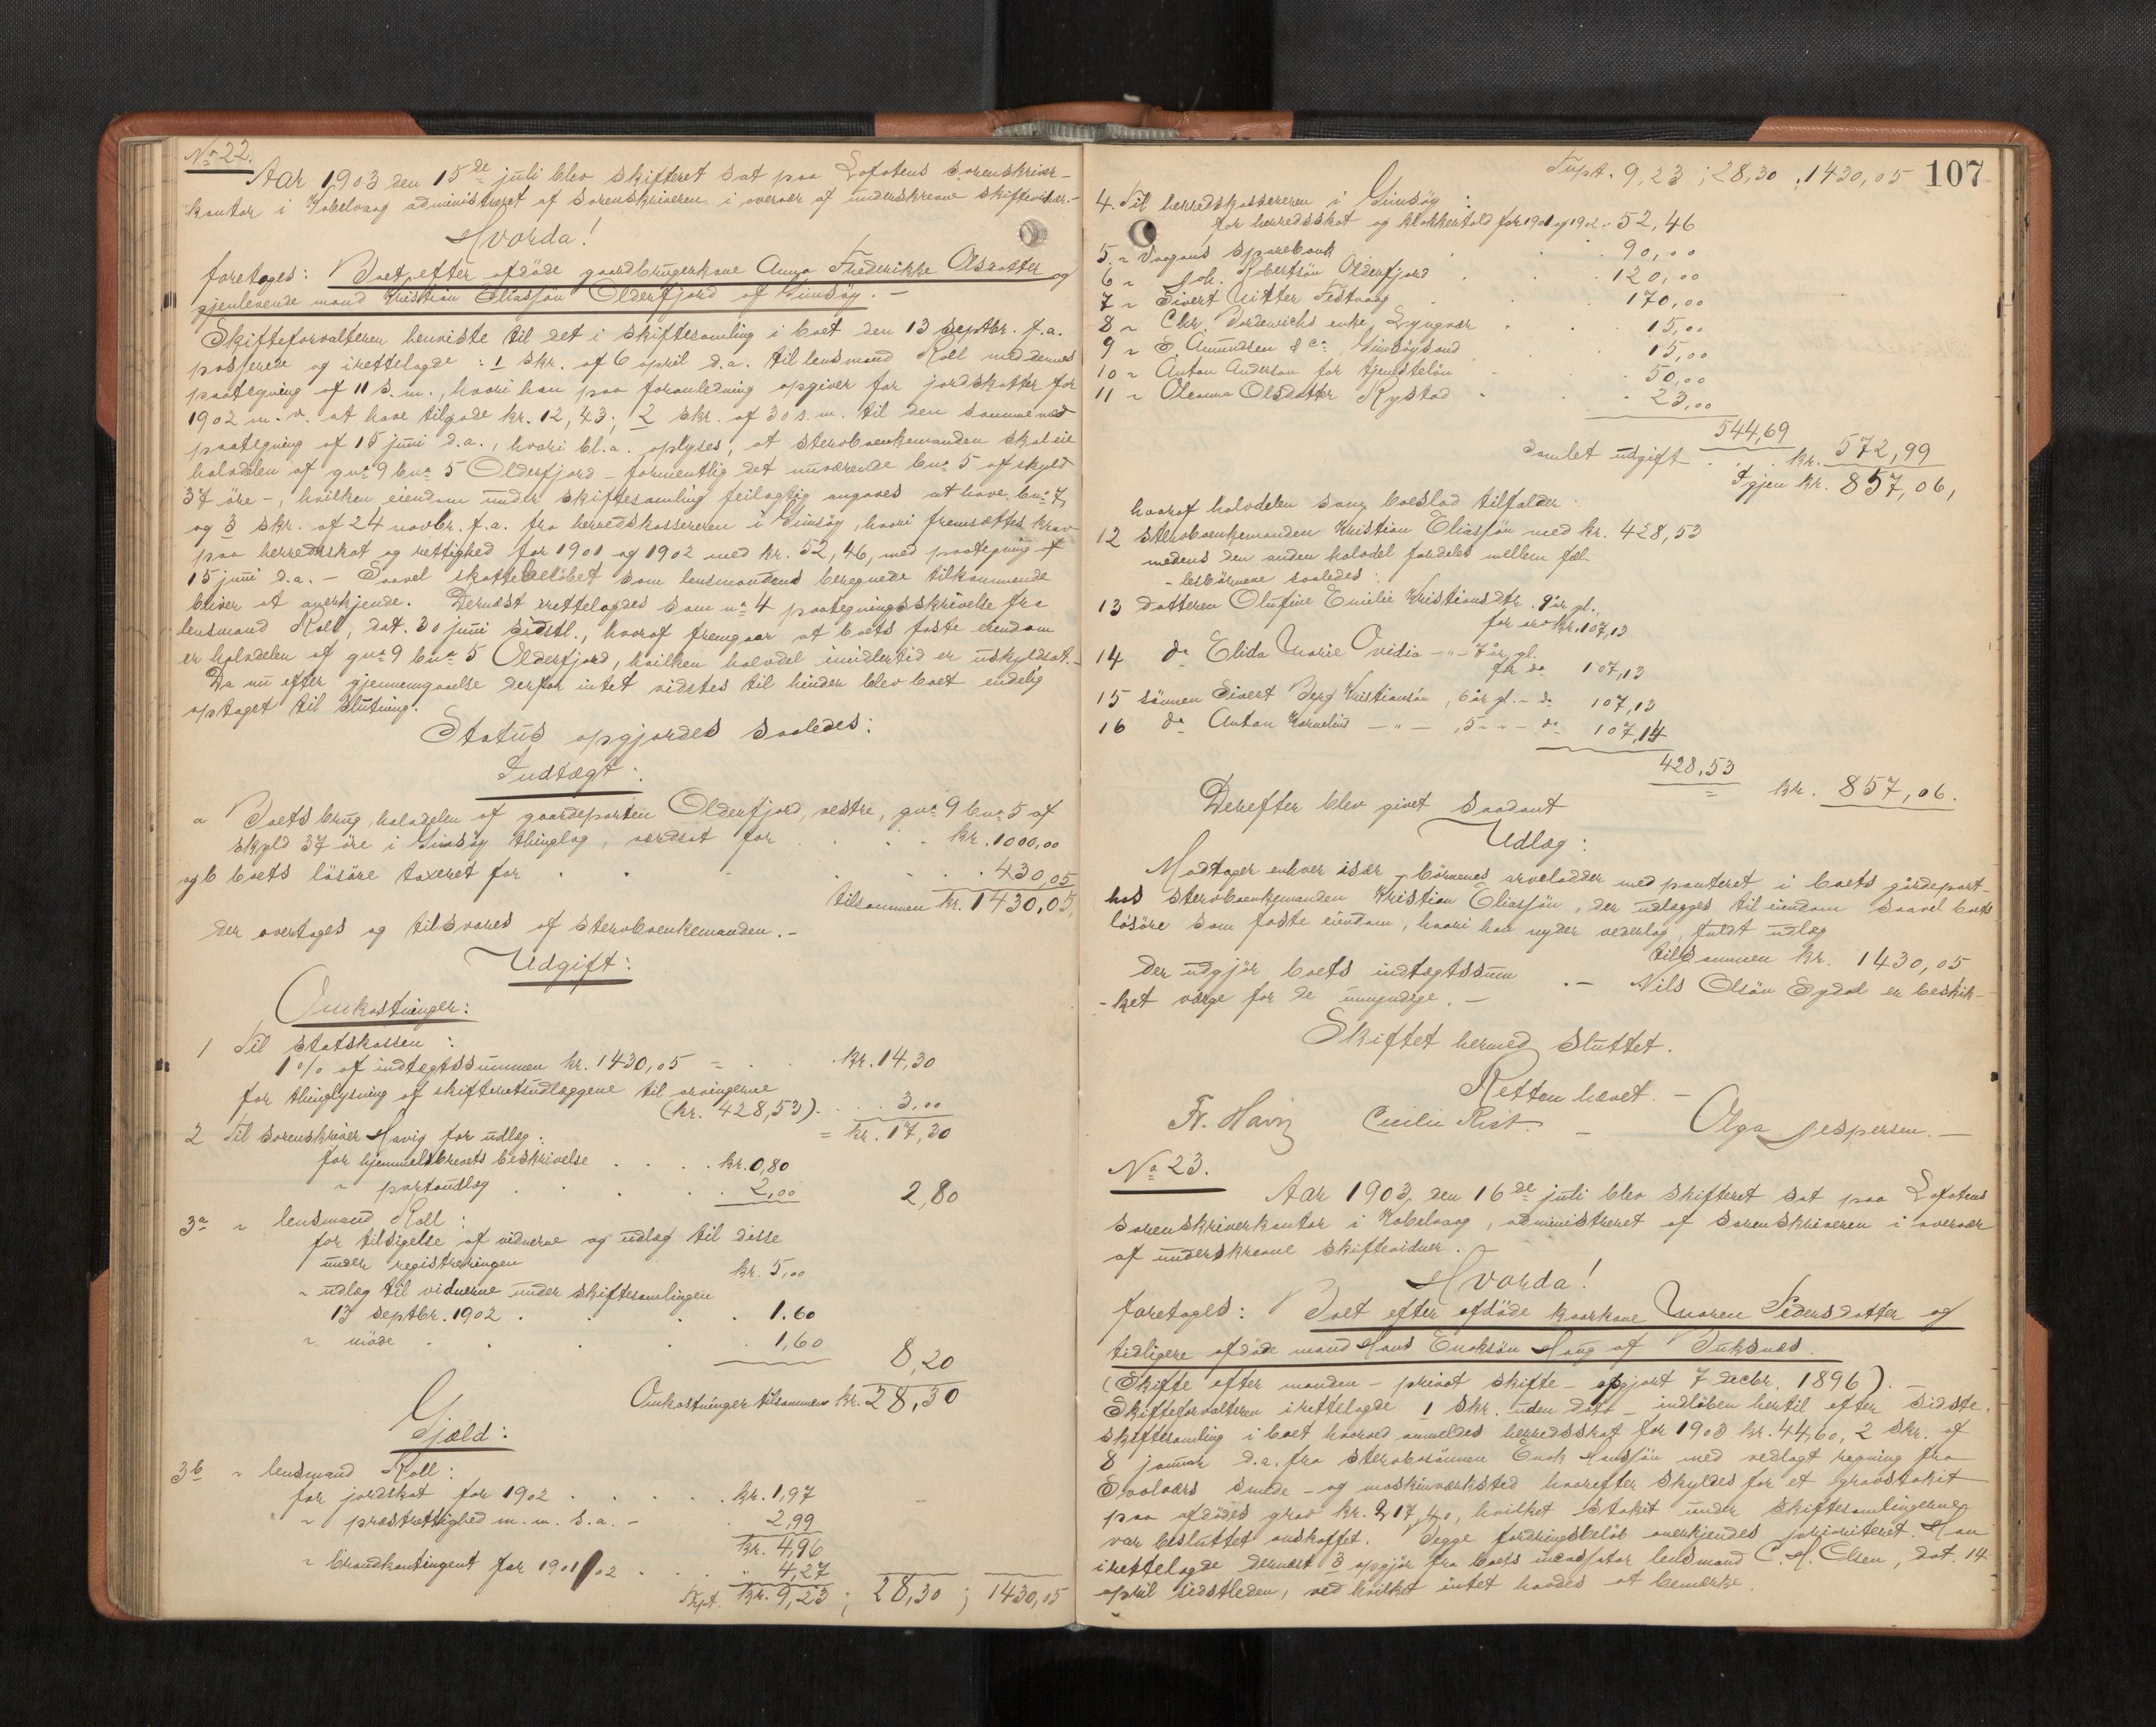 No 22.
Aar 1903 den 15de juli blev skifteret sat paa Lofotens sorenskriver-
kontor i Kabelvaag administreret af sorenskriveren i overvær af underskrevne skiftevidner.-
Hvorda!
foretoges: Boet efter afdöde gaardbrugerkone Anna Frederikke Olsdatter og
gjenlevende mand Kristian Eliassön Olderfjord af Gimsöy. -
Skifteforvalteren henviste til det i skiftesamling i boet den 13 septbr. f.a.
passerede og irettelagde: 1 skr. af 6 april d.a. til lensmand Roll med dennes
paategning af 11 s.m., hvori han paa foranledning opgiver for jordskatter for
1902 m.v. at have tilgode kr. 12,43; 2 skr. af 30 s.m. til den samme med
paategning af 15 juni d.a., hvori bl.a. oplyses, at sterboenkemanden skal eie
halvdelen af gno 9 bno 5 Olderfjord - formentlig det nuværende bno 5 af skyld
37 öre -, hvilken eiendom under skiftesamling feilagtig angaves at have bno 7,
og 3 skr. af 24 novbr. f.a. fra herredskassereren i Gimsöy, hvori fremsættes krav
paa herredsskat og rettighed for 1901 og 1902 med kr. 52,46, med paategning af
15 juni d.a. - Saavel skattebelöbet som lensmandens beregnede tilkommende
bliver at anerkjende. Dernæst irettelagdes som no 4 paategningsskrivelse fra
lensmand Roll, dat. 30 juni sidstl., hvoraf fremgaar at boets faste eiendom
er halvdelen af gno 9 bno 5 Olderfjord, hvilken halvdel imidlertid er uskyldsat.-
Da nu efter gjennemgaaelse derfor intet vidstes til hinder blev boet endelig
optaget til slutning.
Status opgjordes saaledes:
Indtægt:
a Boets brug, halvdelen af gaardeparten Olderfjord, vestre, gno 9 bno 5 af
skyld 37 öre i Gimsöy thinglag, værdsat for . . . kr. 1000,00
og b boets lösöre taxeret for . . . 430,05
tilsammen kr. 1430,05,
der overtages og tilsvares af sterboenkemanden. -
Udgift:
Omkostninger:
1 Til statskassen:
1% af indtægtssummen kr. 1430,05 = . . kr. 14,30
for thinglysning af skifteretsudlæggene til arvingerne
(kr. 428,53) . . . 3,00
= kr. 17,30
2 Til sorenskriver Havig for udlæg:
for hjemmelsbrevets beskrivelse . . . . kr. 0,80
" portoudlæg . . . . 2,00 2,80
3a " lensmand Roll:
for tilsigelse af vidnerne og udlæg til disse
under registreringen kr. 5,00
" udlæg til vidnerne under skiftesamlingen
13 septbr. 1902 . . . . 1.60
" möde . . . . 1,60 8,20
Omkostninger tilsammen kr. 28,30
Gjæld:
3b " lensmand Roll:
for jordskat for 1902 . . . . . kr. 1,97
" præstrettighed m.m. s.a. - . 2,99
kr. 4,96
" brandkontingent for 1901/02 . . . " 4,27
Trpt. kr. 9,23 ; 28,30 ; 1430,05
Trpt. 9,23 ; 28,30 ; 1430,05 107
4. Til herredskassereren i Gimsöy:
for herredsskat og klokkertold for 1901 og 1902 .. 52,46
5. " Vaagans sparebank . . 90,00
6 " Joh. Robertsön Olderfjord . . 120,00
7 " Sivert Vitter Festvaag . . 170,00
8 " Chr. Bordewichs enke, Lyngvær . . 15,00
9 " S. Amundsen & Co, Gimsöysand 15,00
10 " Anton Anderson for tjenstelön . 50,00
11 " Oleanna Olsdatter Rystad . . 23,00
544,69
Samlet udgift . . . kr. 572,99
Igjen kr. 857,06,
hvoraf halvdelen som boeslod tilfalder:
12 sterboenkemanden Kristian Eliassön med kr. 428,53
medens den anden halvdel fordeles mellem fæl-
- lesbörnene saaledes:
13 datteren Olufine Emilie Kristiansdtr. 9 år gl.,
for arv kr. 107,13
14 do Elida Marie Ovidia - " - 7 år gl.
for do 107,13
15 sönnen Sivert Berg Kristiansön, 6 år gl. " do 107,13
16 do Anton Kornelius - " - , 5 " " - do 107,14
428,53
= kr. 857,06.
Derefter blev givet saadant
Udlæg:
Modtager enhver især, börnenes arvelodder med panteret i boets gårdepart-
hos sterboenkemanden Kristian Eliassön, der udlægges til eiendom saavel boets
lösöre som faste eiendom, hvori han nyder vederlag, fuldt udlæg
tilsammen kr. 1430,05
der udgjör boets indtægtssum . - Nils Olsön Sydal er beskik-
- ket værge for de umyndige. -
Skiftet hermed sluttet.
Retten hævet. -
Fr. Havig Cecilie Rist. - Olga Jespersen. -
No 23.
Aar 1903, den 16de juli blev skifteret sat paa Lofotens
sorenskriverkontor i Kabelvaag, administreret af sorenskriveren i overvær
af underskrevne skiftevidner.
Hvorda!
foretoges: Boet efter afdöde kaarkone Maren Pedersdatter og
tidligere afdöde mand Hans Enoksön Haug af Buksnes.
(Skifte efter manden - privat skifte - opgjort 7 decbr. 1896). -
Skifteforvalteren irettelagde 1 skr. uden dato - indlöben hertil efter sidste
skiftesamling i boet hvorved anmeldes herredsskat for 1903 kr. 44,60, 2 skr. af
8 januar d.a. fra sterbosönnen Enok Hanssön med vedlagt regning fra
Svolværs smede - og maskinværksted hvorefter skyldes for et gravstakit
paa afdödes grav kr. 217,40, hvilket stakit under skiftesamlingerne
var besluttet anskaffet. Begge fordringsbelöb anerkjendes prioriteret. Han
irettelagde dernæst 3 opgjör fra boets incassator lensmand C. H. Olsen, dat. 14
april sidstleden, ved hvilket intet havdes at bemerke.